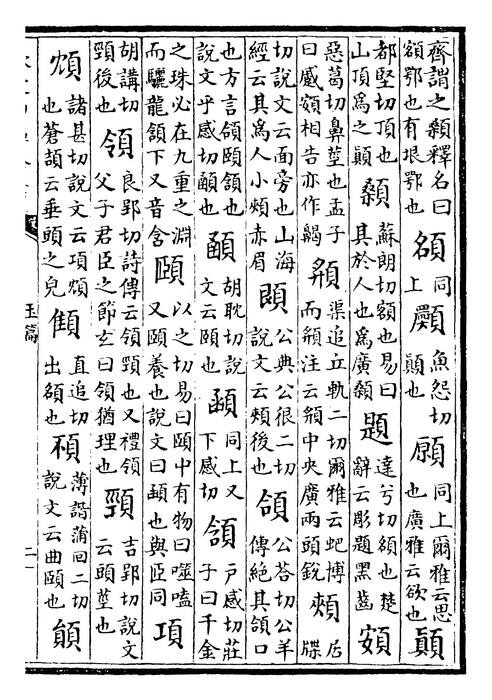 齊謂之顙釋名曰額鄂也有垠鄂也頟同上魚怨切顚也願同上爾雅云思也廣雅云欲也顛
都堅切頂也山頂爲之顛顙蘇朗切額也易曰其於人也爲廣顙題達兮切頟也楚辭云彫題黑齒頞
惡葛切鼻莖也孟子曰蹙頞相告亦作齃頯渠追丘軌二切爾雅云蚆博而頯注云頯中央廣兩頭銳頰居牒
切說文云面旁也山海經云其爲人小頰赤眉䫀公典公很二切說文云頰後也頜公荅切公羊傳絕其頜口
也方言頷頤頜也說文乎感切顄也顄胡耽切說文云頤也同上又下感切頷戶感切莊子曰千金
之珠必在九重之淵而驪龍頷下又音含頤以之切易曰頤中有物曰噬嗑又頤養也說文曰也與𦣞同項
胡講切頸後也領良郢切詩傳云領頸也又禮領父子君臣之節玄曰領猶理也頸吉郢切說文云頭莖也
諸甚切說文云項也蒼頡云垂頭之皃顀直追切出頟也薄諧蒲回二切說文云曲頤也
玉篇